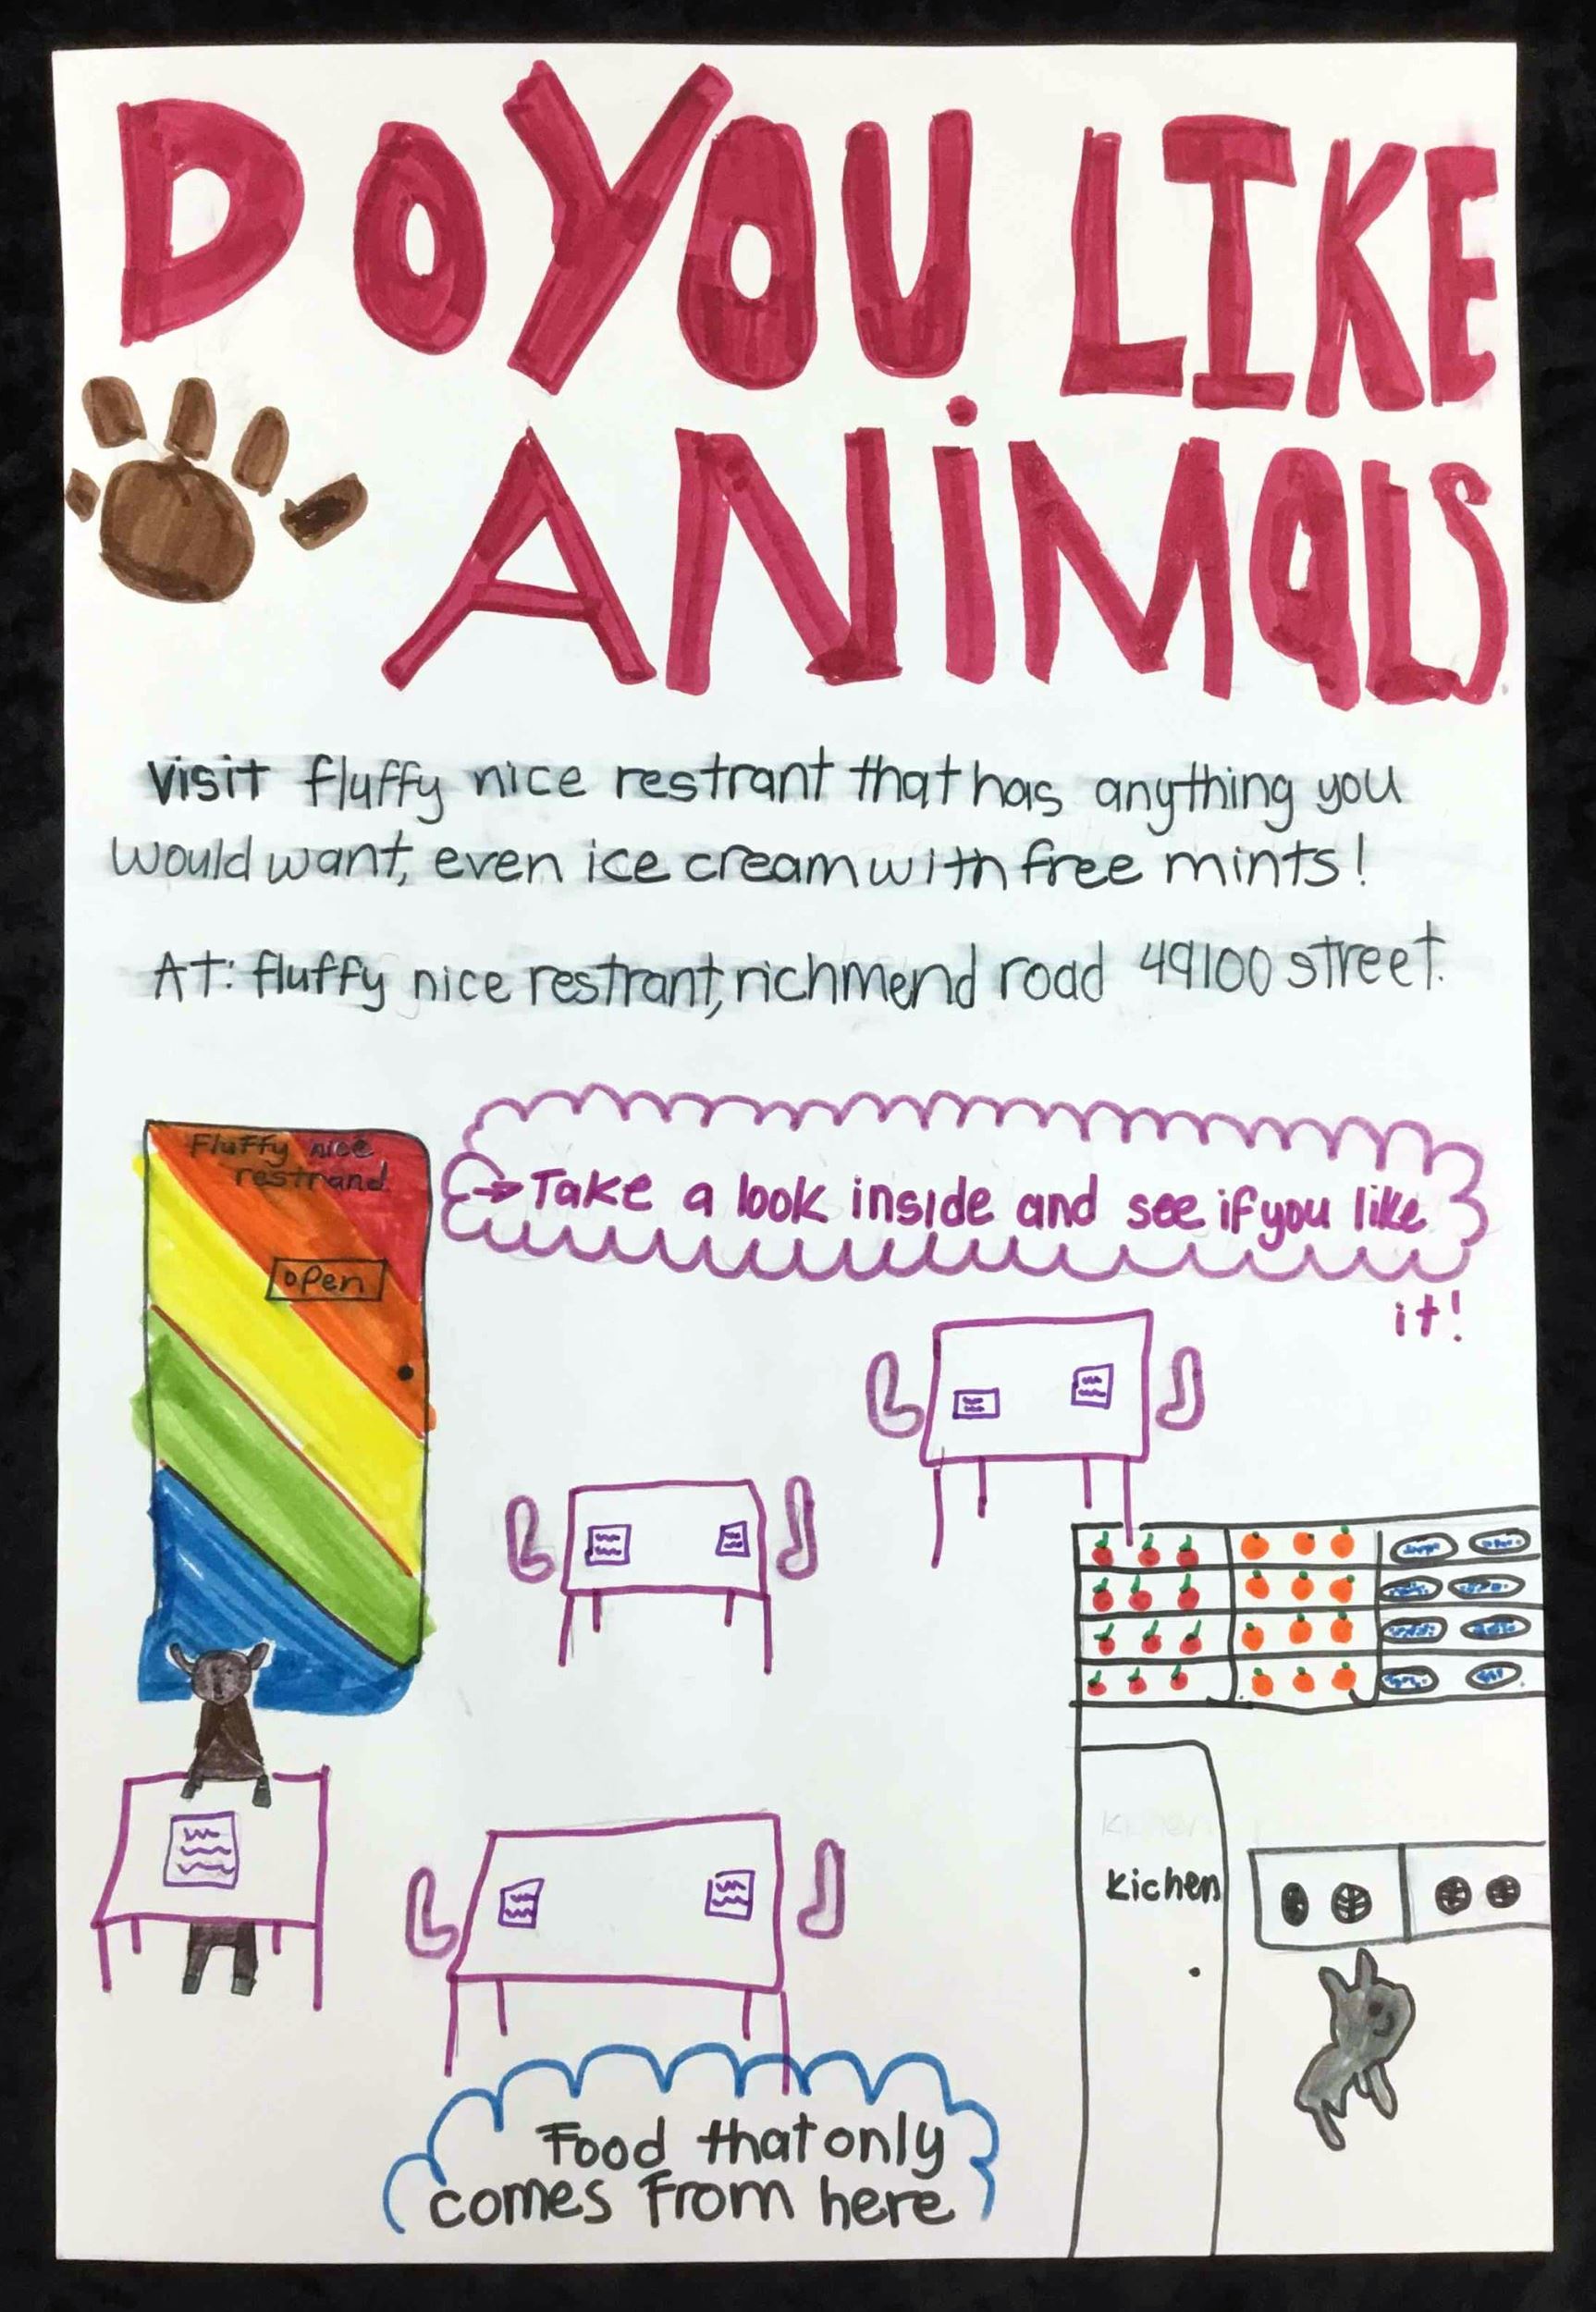 DO YOU LIKE
ANiMaLS
visit fluffy nice restrant that has anything you
would want, even ice cream with free mints!
AT: fluffy nice restrant, richmend road 49100 street.
Fluffy nice
restrand
open
Take a look inside and see if you like
it!
kichen
Food that only
comes from here